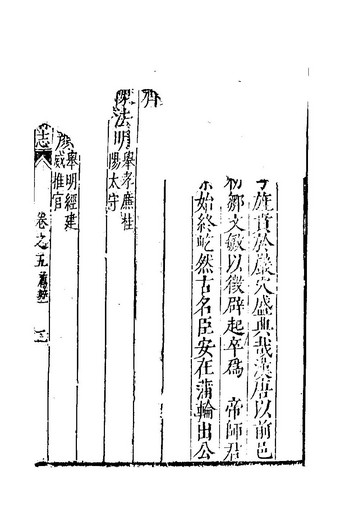 旌賁於巖穴盛典哉漢唐以前邑
鄒文敏以徵辟起卒爲 帝師君
始終屹然古名臣安在蒲輪出公
隋
陳法明舉孝廉桂
陽太守
顏舉明經建
威推官
志 卷之五